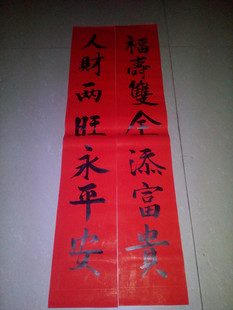 福壽雙全添富貴
人財两旺永平安